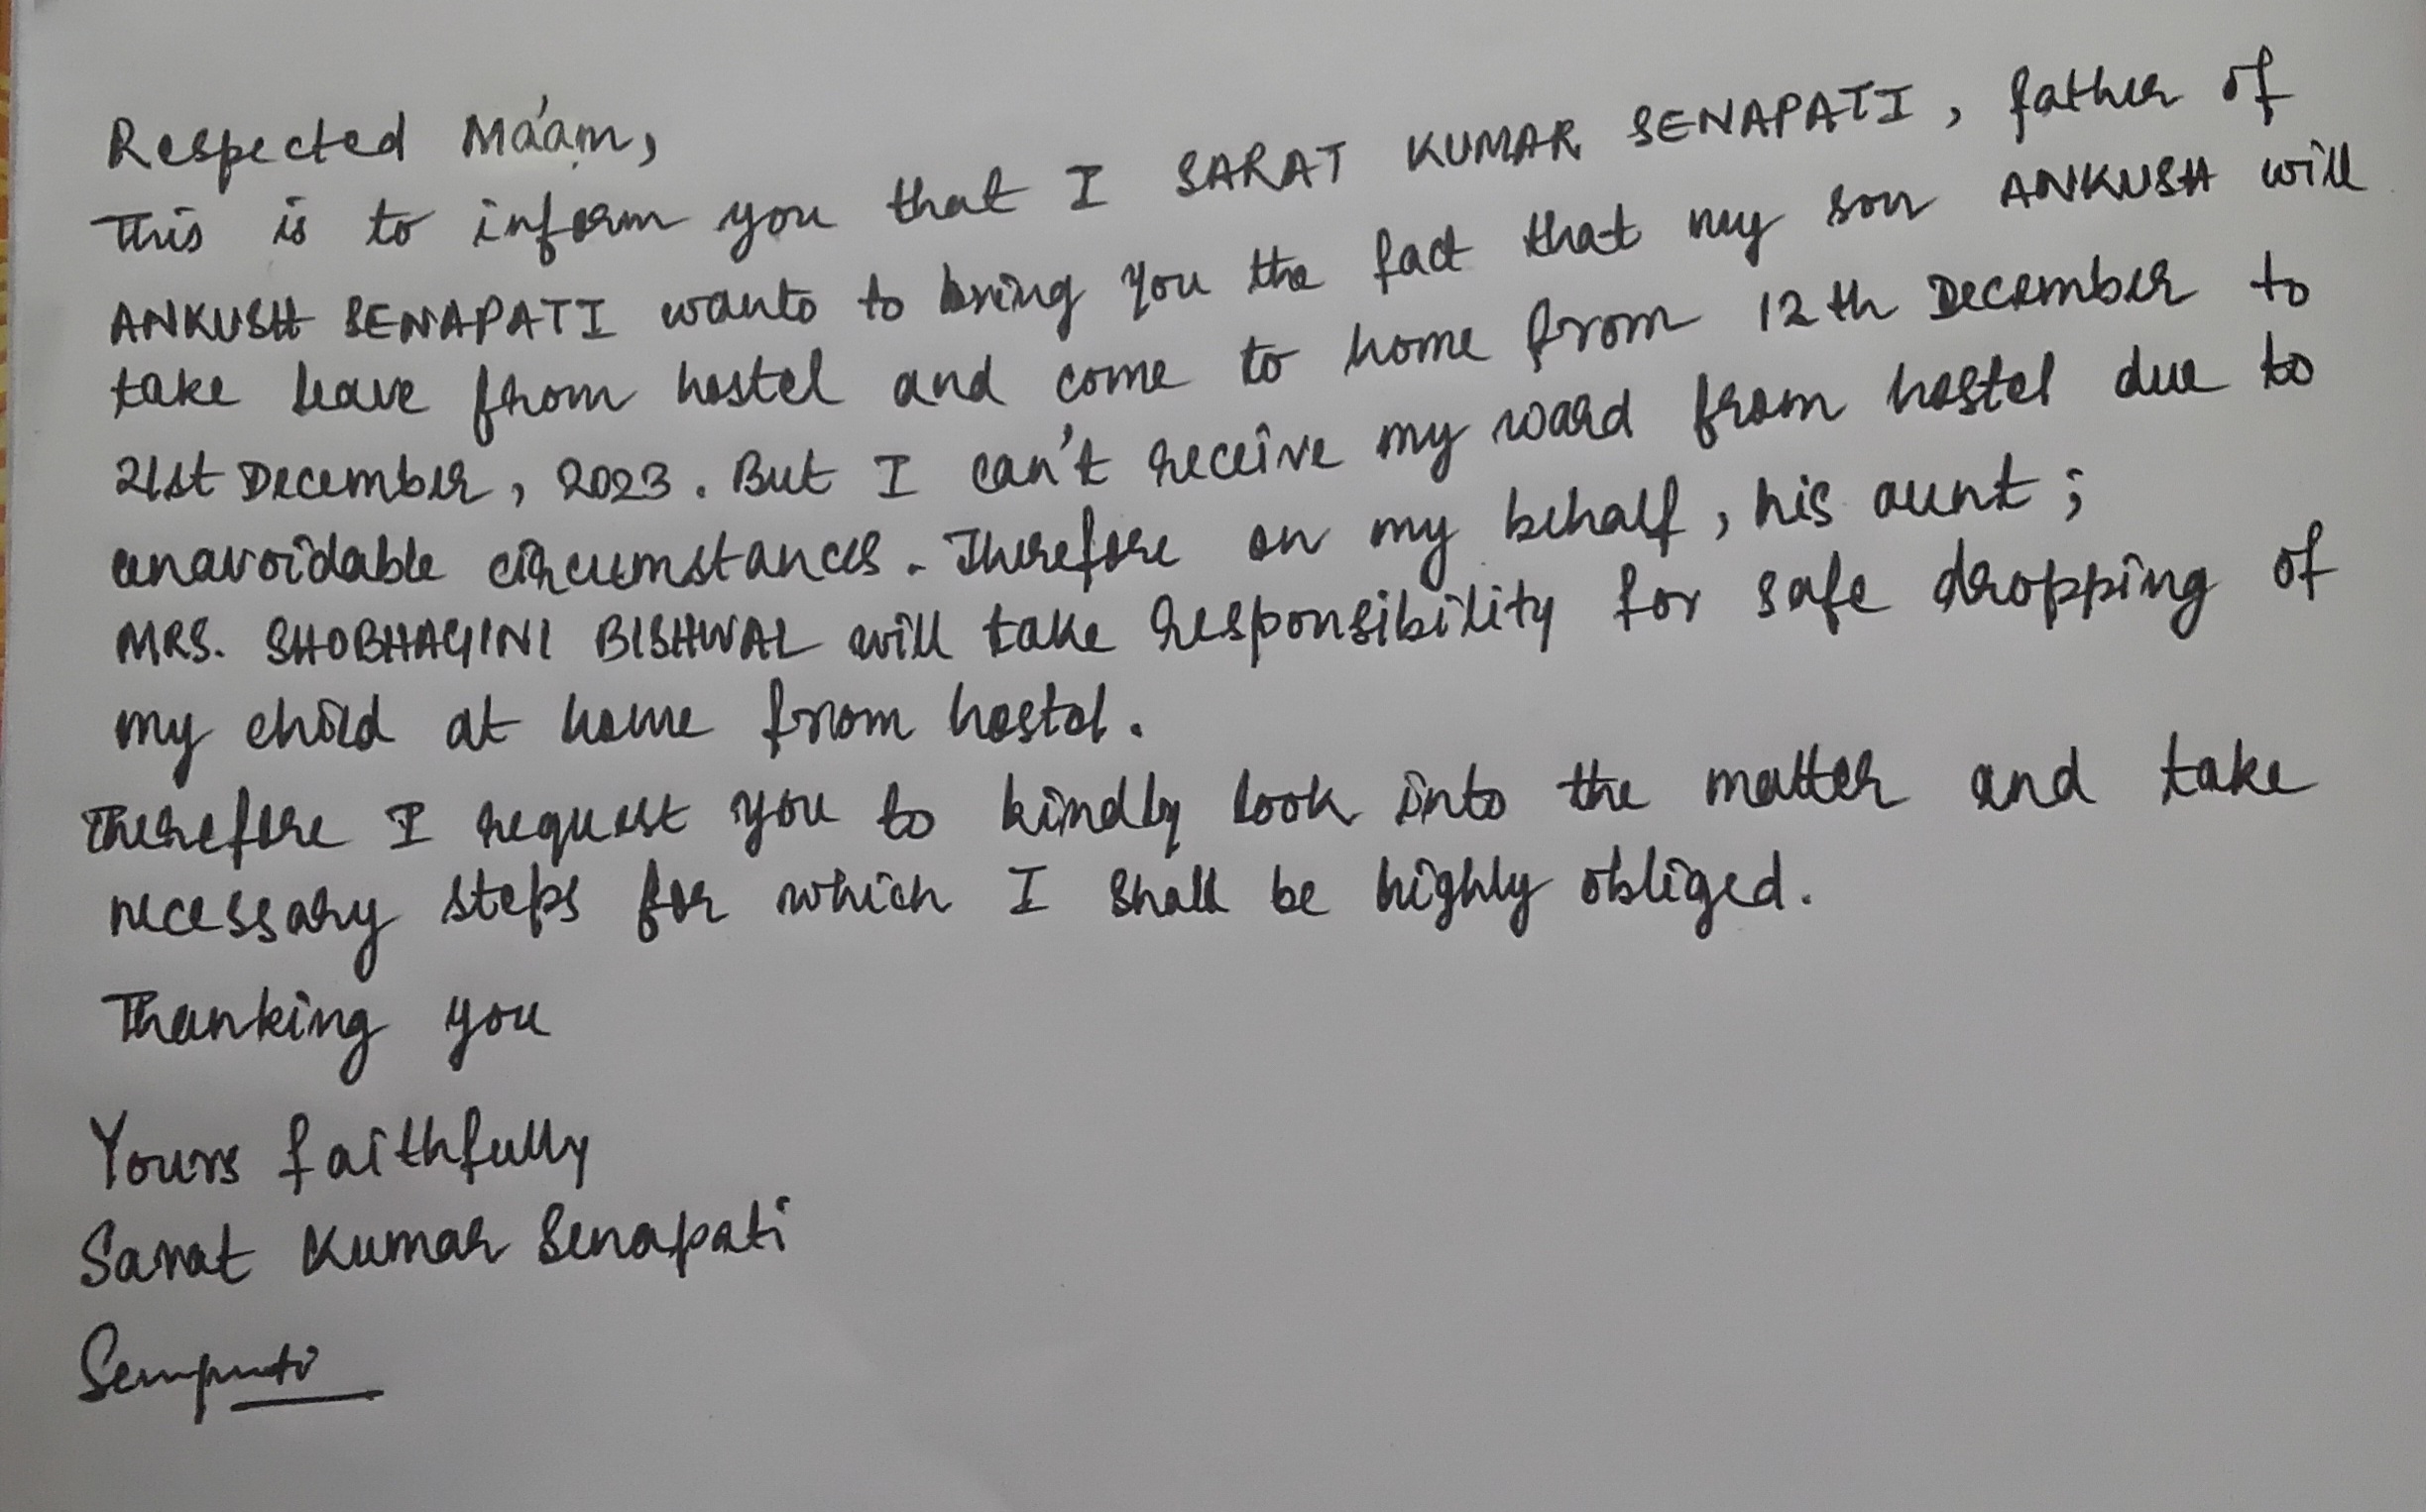 Respected Ma'am,
This is to inform you that I SARAT KUMAR SENAPATI, father of
ANKUSH SENAPATI wants to bring you the fact that my son ANKUSH will
take leave from hostel and come to home from 12th December to
21st December, 2023. But I can't receive my ward from hostel due to
unavoidable circumstances. Therefore on my behalf, his aunt;
MRS. SHOBHAGINI BISHWAL will take responsibility for safe dropping of
my child at home from hostel.
Therefore I request you to kindly look into the matter and take
necessary steps for which I shall be highly obliged.
Thanking you
Yours faithfully
Sarat Kumar Senapati
Senapati